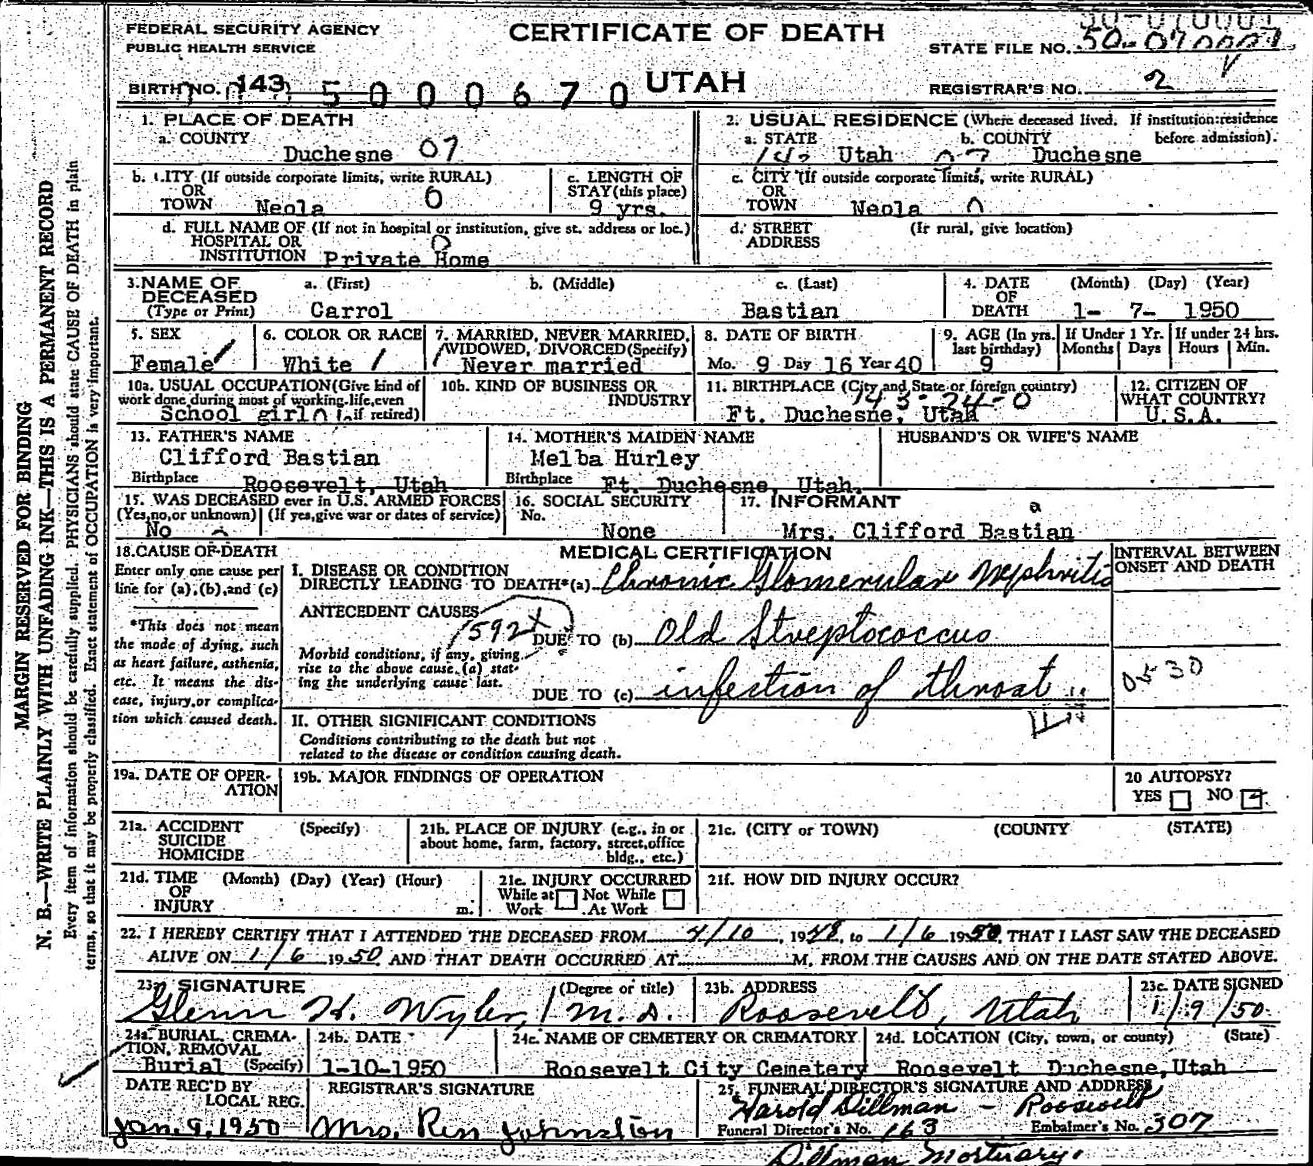 FEDERAL SECURITY AGENCY
PUBLIC HEALTH SERVICE
CERTIFICATE OF DEATH
STATE FILE NO. 50-070001
BIRTH NO. 143 5000670
UTAH
REGISTRAR'S NO. 2
1. PLACE OF DEATH
a. COUNTY
Duchesne 07
2. USUAL RESIDENCE (Where deceased lived. If institution:residence before admission).
a. STATE b. COUNTY
Utah Duchesne
b. CITY (If outside corporate limits, write RURAL)
OR
TOWN Neola 0
c. LENGTH OF
STAY (this place)
9 yrs.
c. CITY (If outside corporate limits, write RURAL)
OR
TOWN Neola 0
d. FULL NAME OF (If not in hospital or institution, give st. address or loc.)
HOSPITAL OR
INSTITUTION Private Home
d. STREET (If rural, give location)
ADDRESS
3. NAME OF a. (First) b. (Middle) c. (Last)
DECEASED
(Type or Print) Carrol Bastian
4. DATE (Month) (Day) (Year)
OF
DEATH 1- 7- 1950
5. SEX
Female
6. COLOR OR RACE
White
7. MARRIED, NEVER MARRIED,
WIDOWED, DIVORCED (Specify)
Never married
8. DATE OF BIRTH
Mo. 9 Day 16 Year 40
9. AGE (In yrs. last birthday)
9
If Under 1 Yr.
Months Days
If under 24 hrs.
Hours Min.
10a. USUAL OCCUPATION (Give kind of
work done during most of working life, even
School girl if retired)
10b. KIND OF BUSINESS OR
INDUSTRY
11. BIRTHPLACE (City and State or foreign country)
143-24-0
Ft. Duchesne, Utah
12. CITIZEN OF
WHAT COUNTRY?
U.S.A.
13. FATHER'S NAME
Clifford Bastian
Birthplace Roosevelt, Utah
14. MOTHER'S MAIDEN NAME
Melba Hurley
Birthplace Ft. Duchesne, Utah.
HUSBAND'S OR WIFE'S NAME
15. WAS DECEASED ever in U.S. ARMED FORCES
(Yes, no, or unknown) (If yes, give war or dates of service)
No
16. SOCIAL SECURITY
No.
None
17. INFORMANT a
Mrs. Clifford Bastian
18. CAUSE OF DEATH
Enter only one cause per
line for (a), (b), and (c)
*This does not mean
the mode of dying, such
as heart failure, asthenia,
etc. It means the dis-
ease, injury, or complica-
tion which caused death.
MEDICAL CERTIFICATION
INTERVAL BETWEEN
ONSET AND DEATH
I. DISEASE OR CONDITION
DIRECTLY LEADING TO DEATH*(a) Chronic Glomerular Nephritis
ANTECEDENT CAUSES
592X
DUE TO (b) Old Streptococcus
Morbid conditions, if any, giving
rise to the above cause (a) stat-
ing the underlying cause last.
DUE TO (c) infection of throat
0530
II. OTHER SIGNIFICANT CONDITIONS
Conditions contributing to the death but not
related to the disease or condition causing death.
19a. DATE OF OPER-
ATION
19b. MAJOR FINDINGS OF OPERATION
20 AUTOPSY?
YES NO
21a. ACCIDENT (Specify)
SUICIDE
HOMICIDE
21b. PLACE OF INJURY (e.g., in or
about home, farm, factory, street, office
bldg., etc.)
21c. (CITY or TOWN) (COUNTY) (STATE)
21d. TIME (Month) (Day) (Year) (Hour)
OF
INJURY m.
21e. INJURY OCCURRED
While at Not While
Work At Work
21f. HOW DID INJURY OCCUR?
22. I HEREBY CERTIFY THAT I ATTENDED THE DECEASED FROM 4/10, 1948, to 1/6 1950, THAT I LAST SAW THE DECEASED
ALIVE ON 1/6 1950 AND THAT DEATH OCCURRED AT M, FROM THE CAUSES AND ON THE DATE STATED ABOVE.
23a. SIGNATURE (Degree or title)
Glenn H. Wyler, M.D.
23b. ADDRESS
Roosevelt, Utah
23c. DATE SIGNED
1/9/50
24a. BURIAL, CREMA-
TION, REMOVAL
Burial (Specify)
24b. DATE
1-10-1950
24c. NAME OF CEMETERY OR CREMATORY
Roosevelt City Cemetery
24d. LOCATION (City, town, or county) (State)
Roosevelt Duchesne, Utah
DATE REC'D BY
LOCAL REG.
Jan. 9, 1950
REGISTRAR'S SIGNATURE
Mrs. Ren Johnston
25. FUNERAL DIRECTOR'S SIGNATURE AND ADDRESS
Harold Dillman - Roosevelt
Funeral Director's No. 163 Embalmer's No. 307
Dillman Mortuary.
MARGIN RESERVED FOR BINDING
N. B.—WRITE PLAINLY WITH UNFADING INK—THIS IS A PERMANENT RECORD
Every item of information should be carefully supplied. PHYSICIANS should state CAUSE OF DEATH in plain
terms, so that it may be properly classified. Exact statement of OCCUPATION is very important.